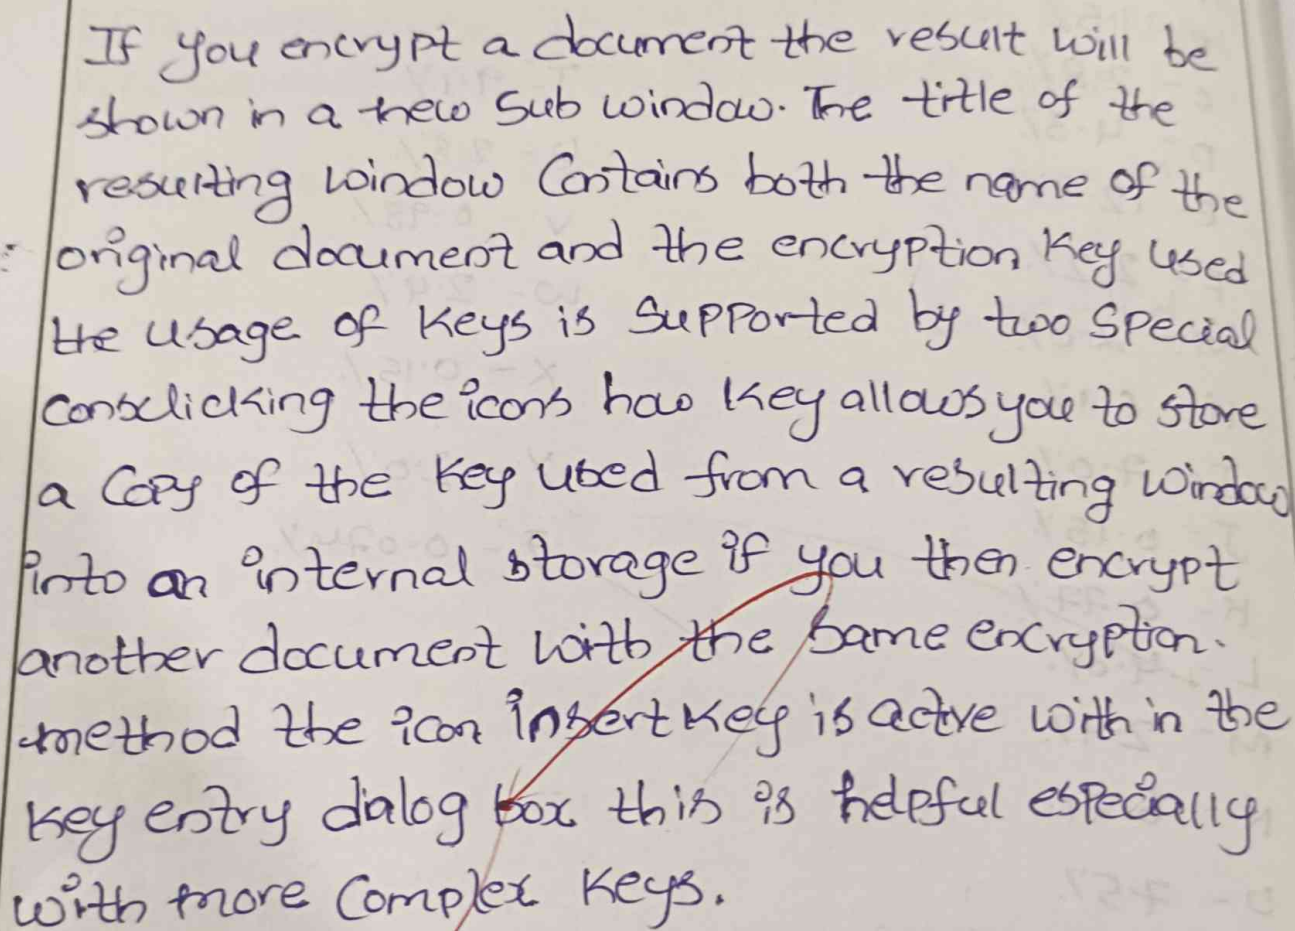 If you encrypt a document the result will be
shown in a new Sub window. The title of the
resulting window Contains both the name of the
original document and the encryption Key used
the usage of Keys is Supported by two Special
consclicking the icons how Key allows you to store
a Copy of the Key used from a resulting window
into an internal storage if you then encrypt
another document with the same encryption.
method the icon insert Key is active with in the
Key entry dialog box this is helpful especially
with more Complex Keys.